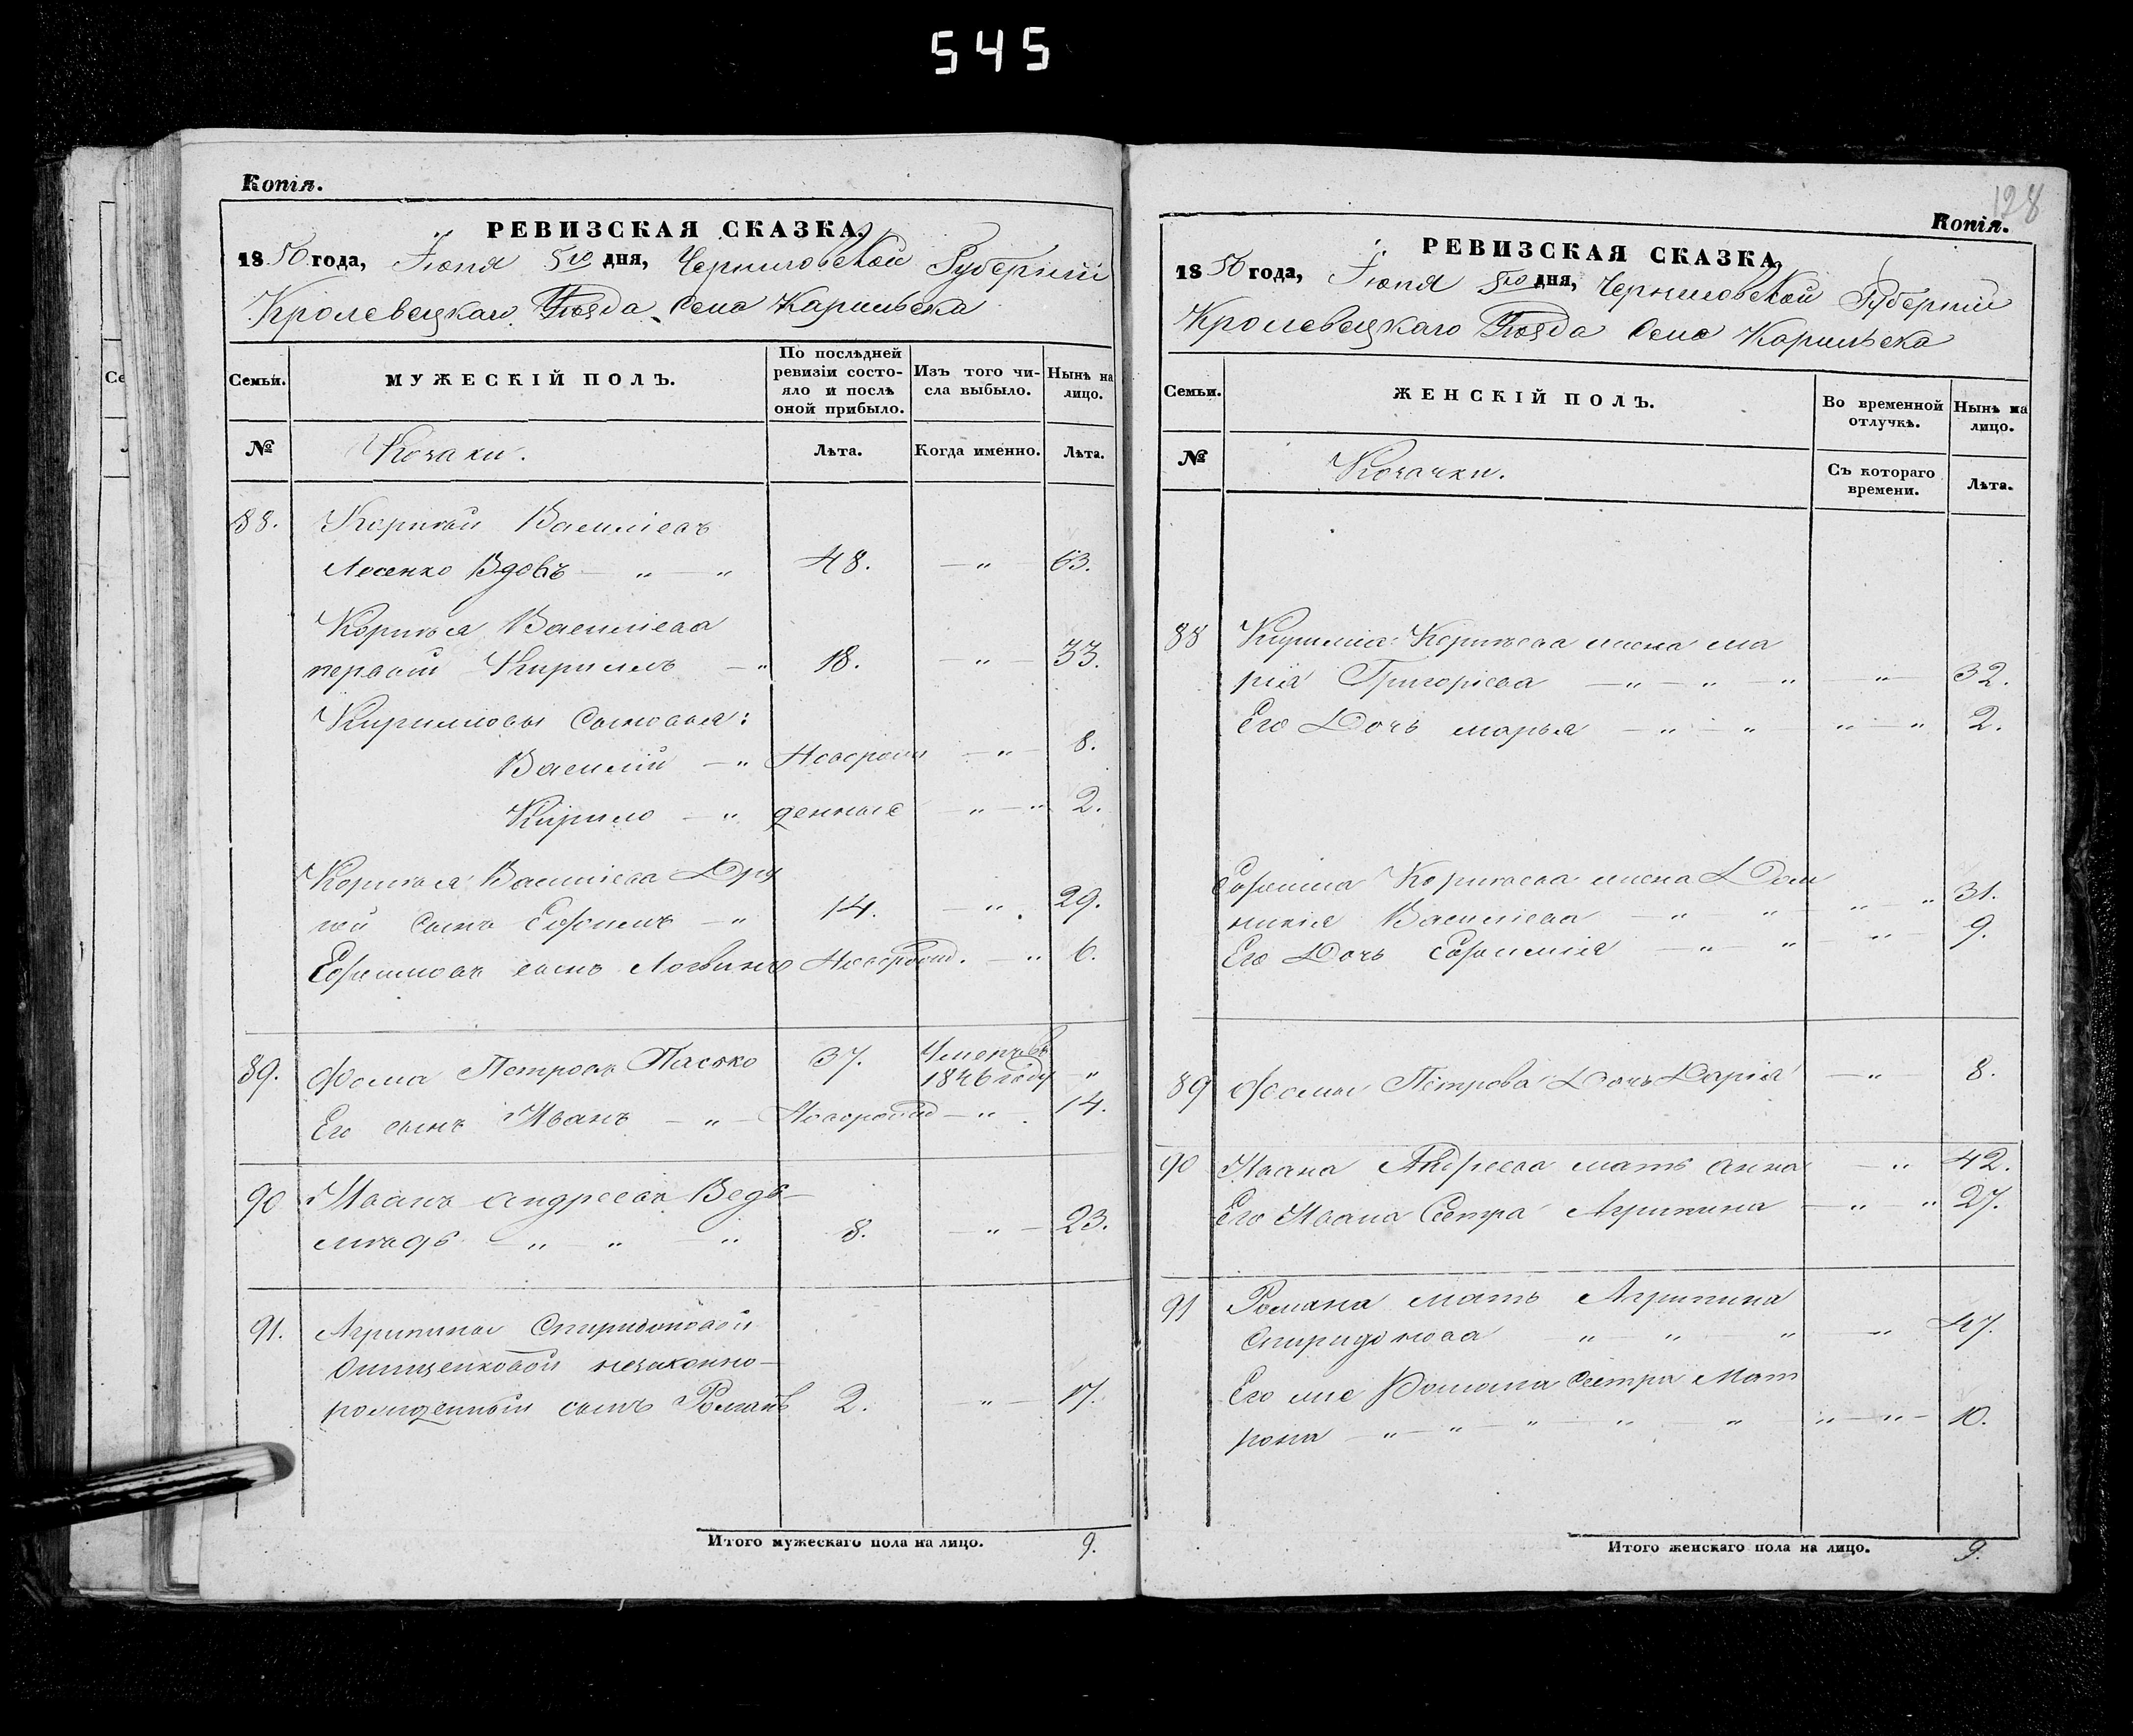 545
Копія.
РЕВИЗСКАЯ СКАЗКА.
1850 года, Іюня 5го дня, Черниговской Губерніи
Кролевецкаго Уѣзда Села Карильска
Семьи.
МУЖЕСКІЙ ПОЛЪ.
По послѣдней ревизіи состояло и послѣ оной прибыло.
Изъ того числа выбыло.
Нынѣ на лицо.
№
Козаки.
Лѣта.
Когда именно.
Лѣта.
88. Корнѣй Василіевъ
Лосенко Вдовъ — " — " 48. — " 63.
Корнѣя Василіева
первый Кирилъ — " 18. — " — 33.
Кириловы Сыновья:
Василій — " Новорож — " — 8.
Кирило — " денные — " — " 2.
Корнѣя Василіева Дру
гой Сынъ Ефимъ — " 14. — " . 29.
Ефимовъ сынъ Логвинъ Новорожд. — " 6.
89. Фома Петровъ Пасько 37. Умеръ въ 1846 году "
Его сынъ Иванъ — " — Новорожд — " 14.
90 Иванъ Андреевъ Ведь-
мѣдь — " " — " 8. — " — 23.
91. Агрипины Спиридоновой
Онищенковой незаконно-
рожденный сынъ Романъ 2. " — 17.
Итого мужескаго пола на лицо. 9.
128
Копія.
РЕВИЗСКАЯ СКАЗКА,
1850 года, Іюня 5го дня, Черниговской Губерніи
Кролевецкаго Уѣзда Села Карильска
Семьи.
ЖЕНСКІЙ ПОЛЪ.
Во временной отлучкѣ.
Нынѣ на лицо.
№
Козачки.
Съ котораго времени.
Лѣта.
88 Кирила Корнѣева жена Ма
рія Григоріева — " — " — " — " — 32.
Его Дочь Марья — " — " " — " 2.
Ефима Корнѣева жена Дом
никія Василіева — " " " — " 31.
Его Дочь Ефимія — " — " — " 9.
89 Фомы Петрова Дочь Дарія — " 8.
90 Ивана Андреева мать Анна — " 42.
Его Ивана Сестра Агрипина — " — " 27.
91 Романа мать Агрипина
Спиридонова " — " " " 47.
Его же Романа Сестра Мат
рона — " — " — " — " — " " — " — 10.
Итого женскаго пола на лицо. 9.